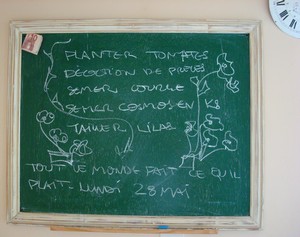 PLANTER TOMATES
DECOCTION DE PRELES
SEMER COURGE
SEMER COSMOS EN
TAILLER LILAS
TOUT LE MONDE FAIT CE QU'IL
PLAIT - LUNDI 28 MAI